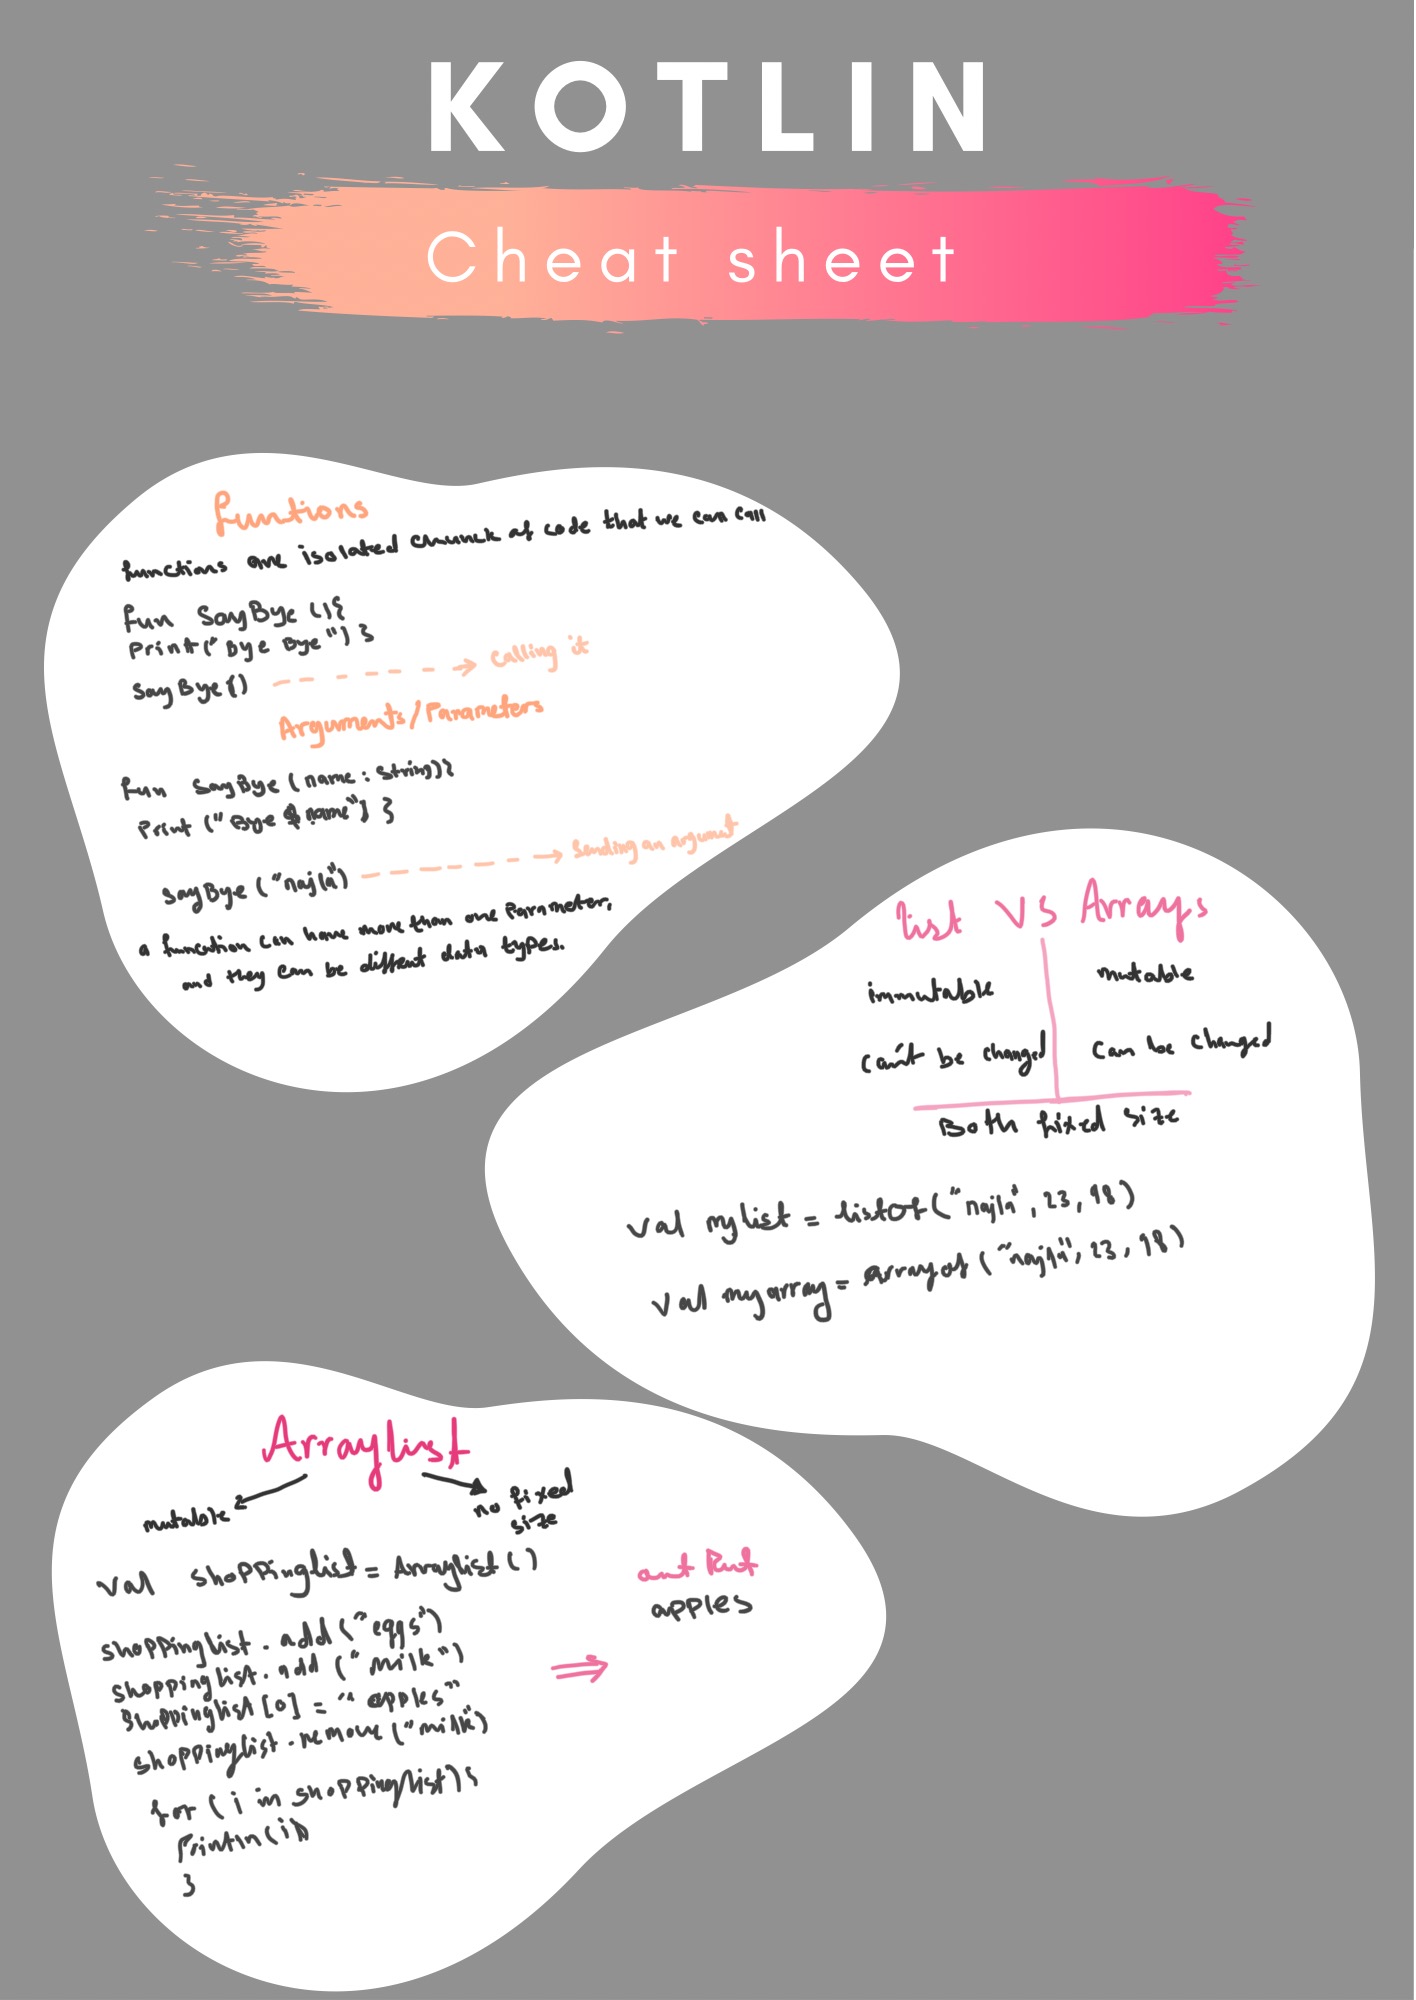 KOTLIN
Cheat sheet
funtions
functions are isolated chunck of code that we can call
fun SayBye (){
Print("Bye Bye") }
SayBye()
calling it
Arguments/Parameters
fun SayBye (name : String){
Print ("Bye $name") }
SayBye ("najla")
Sending an argument
a function can have more than one Parameter,
and they can be diffrent data types.
list VS Arrays
immutable
mutable
can't be changed
can be changed
Both fixed size
val mylist = listof("najla", 23, 98)
val myarray = arrayof ("najla", 23, 98)
Arraylist
mutable
no fixed
size
val shoppinglist = Arraylist()
shoppinglist.add("eggs")
shoppinglist.add ("milk")
shoppinglist[0] = "apples"
shoppinglist.remove("milk")
for (i in shoppinglist){
Println(i)
}
out Put
apples